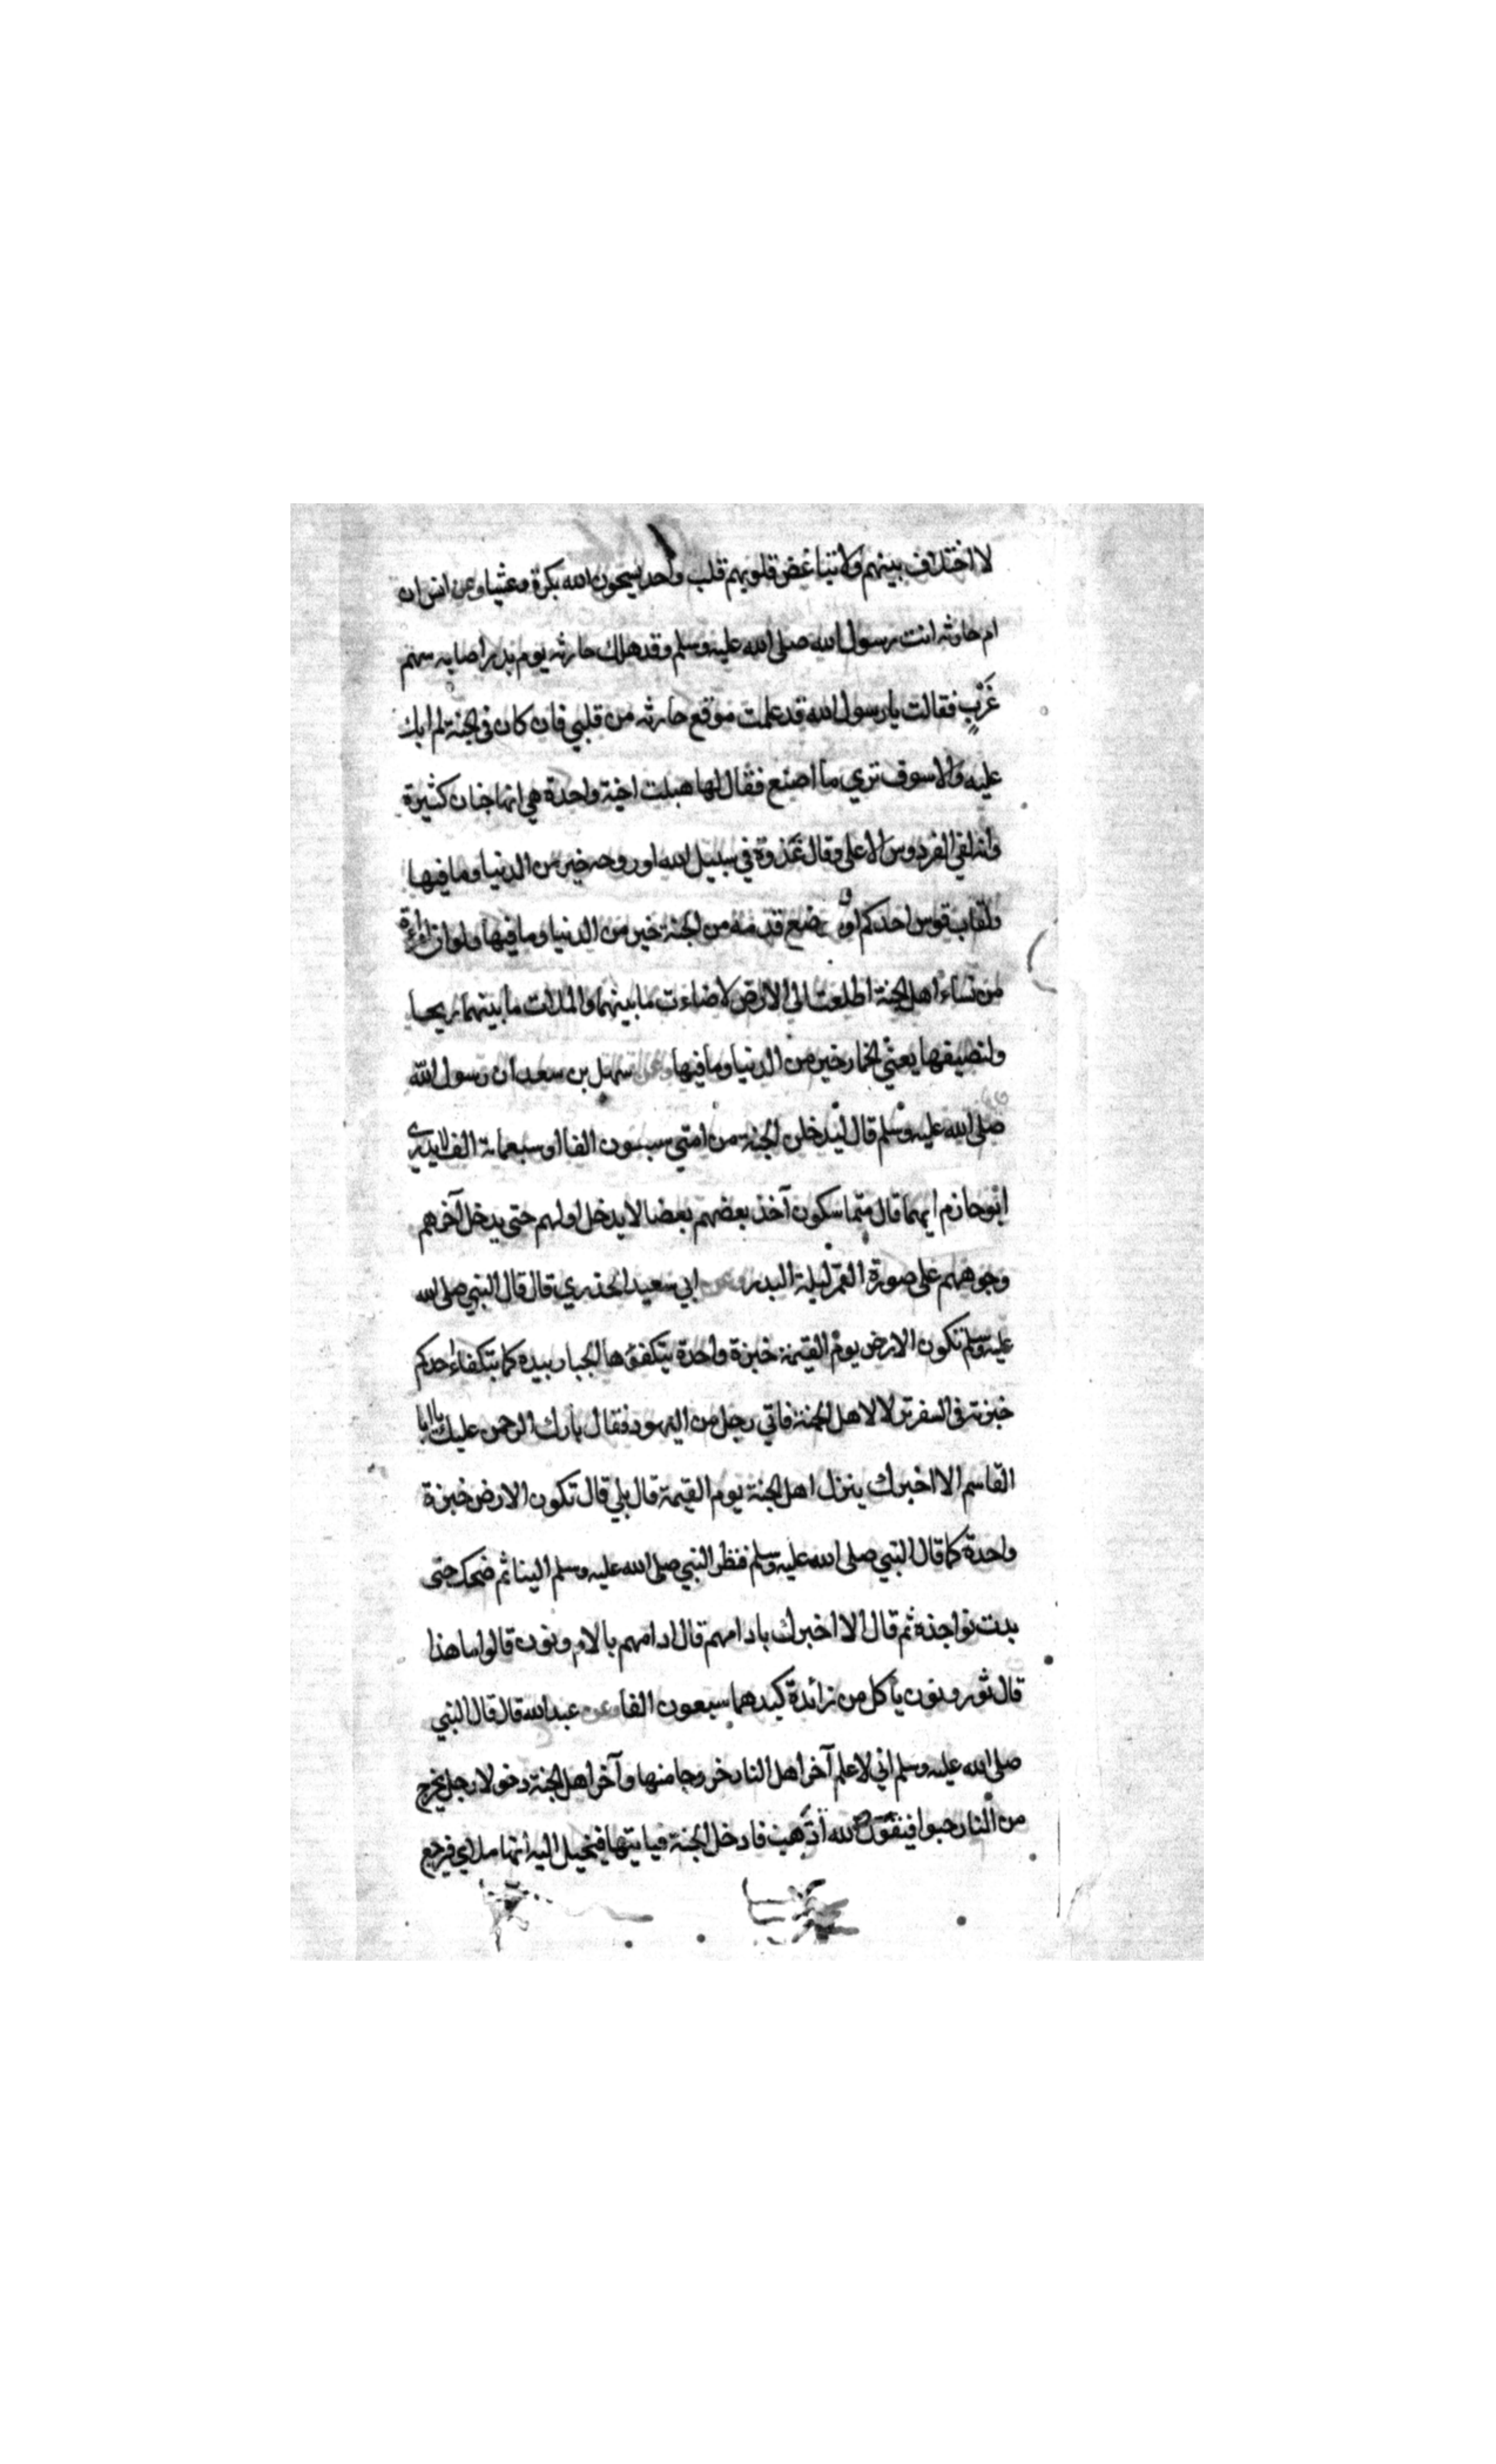 لا اختلاف بينهم ولا تباغض قلوبهم قلب واحد يسبحون الله بكرة وعشيا وعن انس ان
ام حارثه اتت رسول الله صلى الله عليه وسلم وقد هلك حارثه يوم بدر اصابه سهم
غَرْبٍ فقالت يا رسول الله قد علمت موقع حارثه من قلبي فان كان في الجنة لم ابك
عليه والا سوف تري ما اصنع فقال لها هبلت اجنة واحدة هي انها جنان كثيرة
وانه لفي الفردوس الاعلى وقال غدوة في سبيل الله او روحه خير من الدنيا وما فيها
ولقاب قوس احدكم او موضع قدمه من الجنة خير من الدنيا وما فيها ولو ان امراة
من نساء اهل الجنة اطلعت الى الارض لاضاءت ما بينهما والملات ما بينهما ريحا
ولنصيفها يعني الخمار خير من الدنيا وما فيها وعن سهل بن سعد ان رسول الله
صلى الله عليه وسلم قال ليدخلن الجنة من امتي سبعون الفا او سبعماية الف لا يدري
ابو حازم ايهما قال متماسكون آخذ بعضهم بعضا لا يدخل اولهم حتى يدخل آخرهم
وجوههم على صورة القمر ليلة البدر وعن ابي سعيد الخدري قال قال النبي صلى الله
عليه وسلم تكون الارض يوم القيمة خبزة واحدة يتكفؤها الجبار بيده كما يتكفاء احدكم
خبزته في السفر نزلا لاهل الجنة فاتي رجل من اليهود فقال بارك الرحمن عليك يا ابا
القاسم الا اخبرك بنزل اهل الجنة يوم القيمة قال بلي قال تكون الارض خبزة
واحدة كما قال النبي صلى الله عليه وسلم فنظر النبي صلى الله عليه وسلم الينا ثم ضحك حتى
بدت نواجذه ثم قال الا اخبرك بادامهم قال ادامهم بالام ونون قالوا ما هذا
قال ثور ونون ياكل من زائدة كبدهما سبعون الفا وعن عبد الله قال قال النبي
صلى الله عليه وسلم اني لاعلم آخر اهل النار خروجا منها وآخر اهل الجنة دخولا رجل يخرج
من النار حبوا فيقول الله اذهب فادخل الجنة فياتيها فيخيل اليه انها ملاي فيرجع